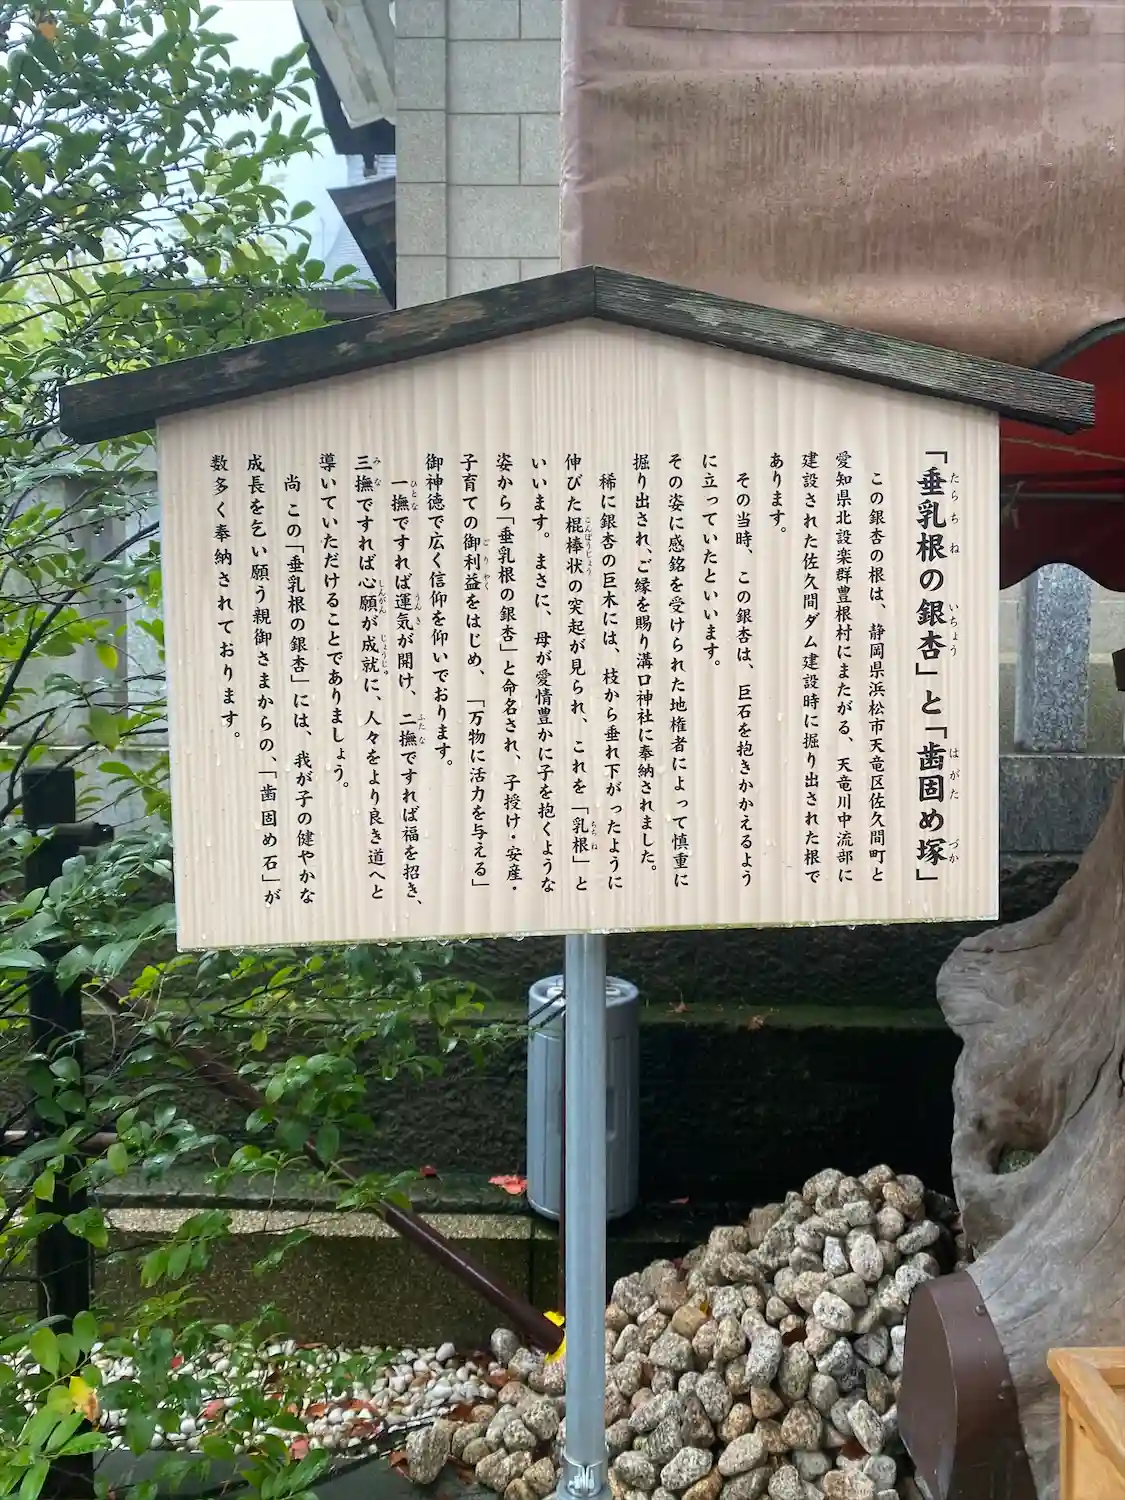 「垂乳根の銀杏」と「歯固め塚」
この銀杏の根は、静岡県浜松市天竜区佐久間町と
愛知県北設楽群豊根村にまたがる、天竜川中流部に
建設された佐久間ダム建設時に掘り出された根で
あります。
その当時、この銀杏は、巨石を抱きかかえるよう
に立っていたといいます。
その姿に感銘を受けられた地権者によって慎重に
掘り出され、ご縁を賜り溝口神社に奉納されました。
稀に銀杏の巨木には、枝から垂れ下がったように
伸びた棍棒状の突起が見られ、これを「乳根」と
いいます。まさに、母が愛情豊かに子を抱くような
姿から「垂乳根の銀杏」と命名され、子授け・安産・
子育ての御利益をはじめ、「万物に活力を与える」
御神徳で広く信仰を仰いでおります。
一撫ですれば運気が開け、二撫ですれば福を招き、
三撫ですれば心願が成就に、人々をより良き道へと
導いていただけることでありましょう。
尚 この「垂乳根の銀杏」には、我が子の健やかな
成長を乞い願う親御さまからの、「歯固め石」が
数多く奉納されております。